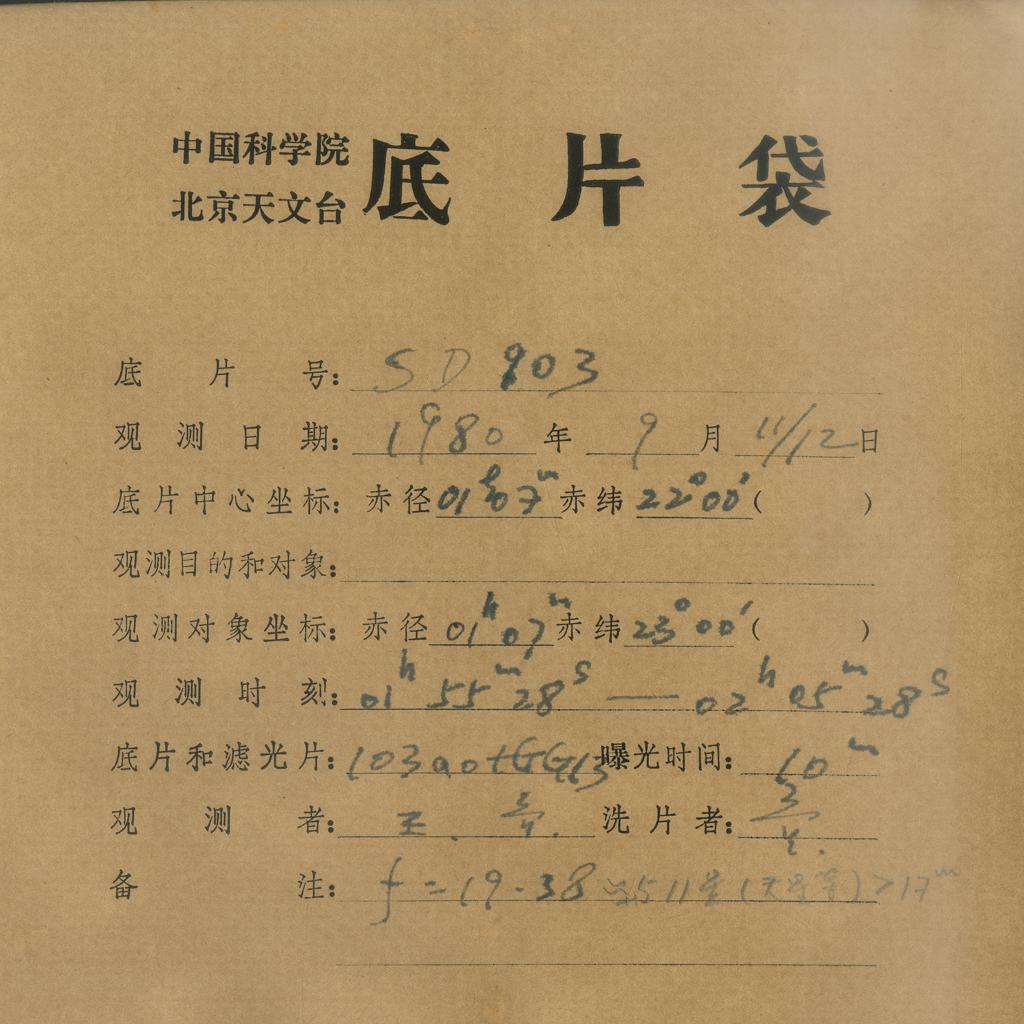 中国科学院
北京天文台
底片袋
底片号: SD 903
观测日期: 1980年 9月 11/12日
底片中心坐标: 赤径 01h07m 赤纬 22°00′( )
观测目的和对象:
观测对象坐标: 赤径 01h07m 赤纬 23°00′( )
观测时刻: 01h 55m 28s — 02h 05m 28s
底片和滤光片: 103aO+GG13 曝光时间: 10m
观测者: 王.
洗片者:
备注: f=19.38 511 >17m